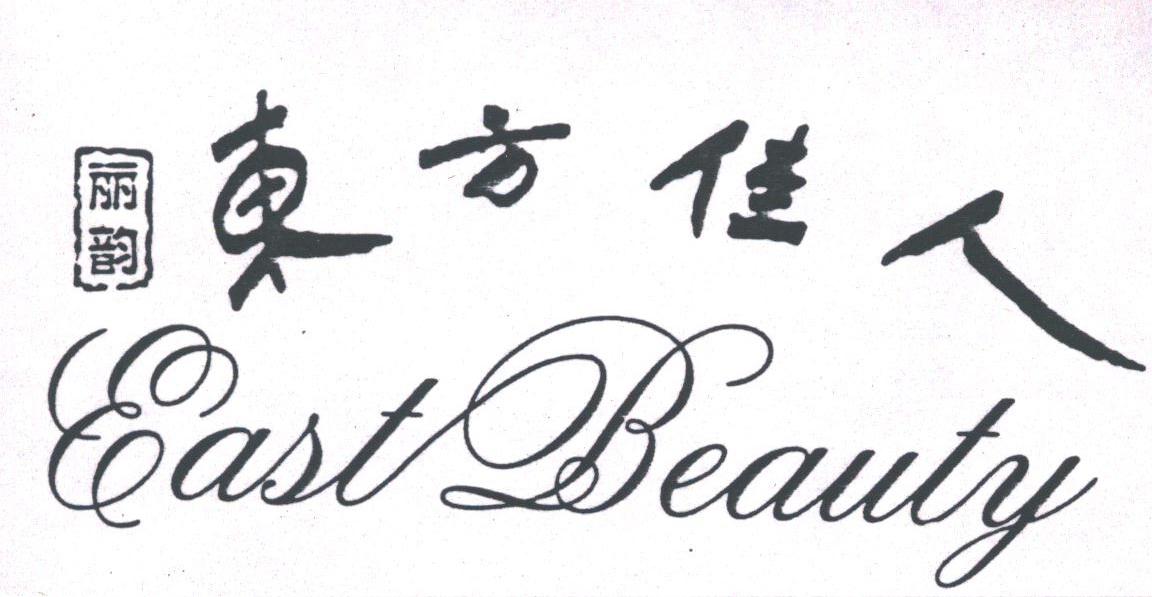 丽韵
東方佳人
East Beauty